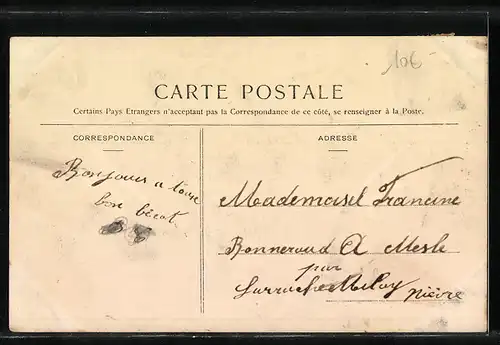 106-
CARTE POSTALE
Certains Pays Etrangers n'acceptent pas la Correspondance de ce côté, se renseigner à la Poste.
CORRESPONDANCE
ADRESSE
Bonjour a tous
bon
Mademoisel Francine
Bonneraud A Mesle
par
Nièvre